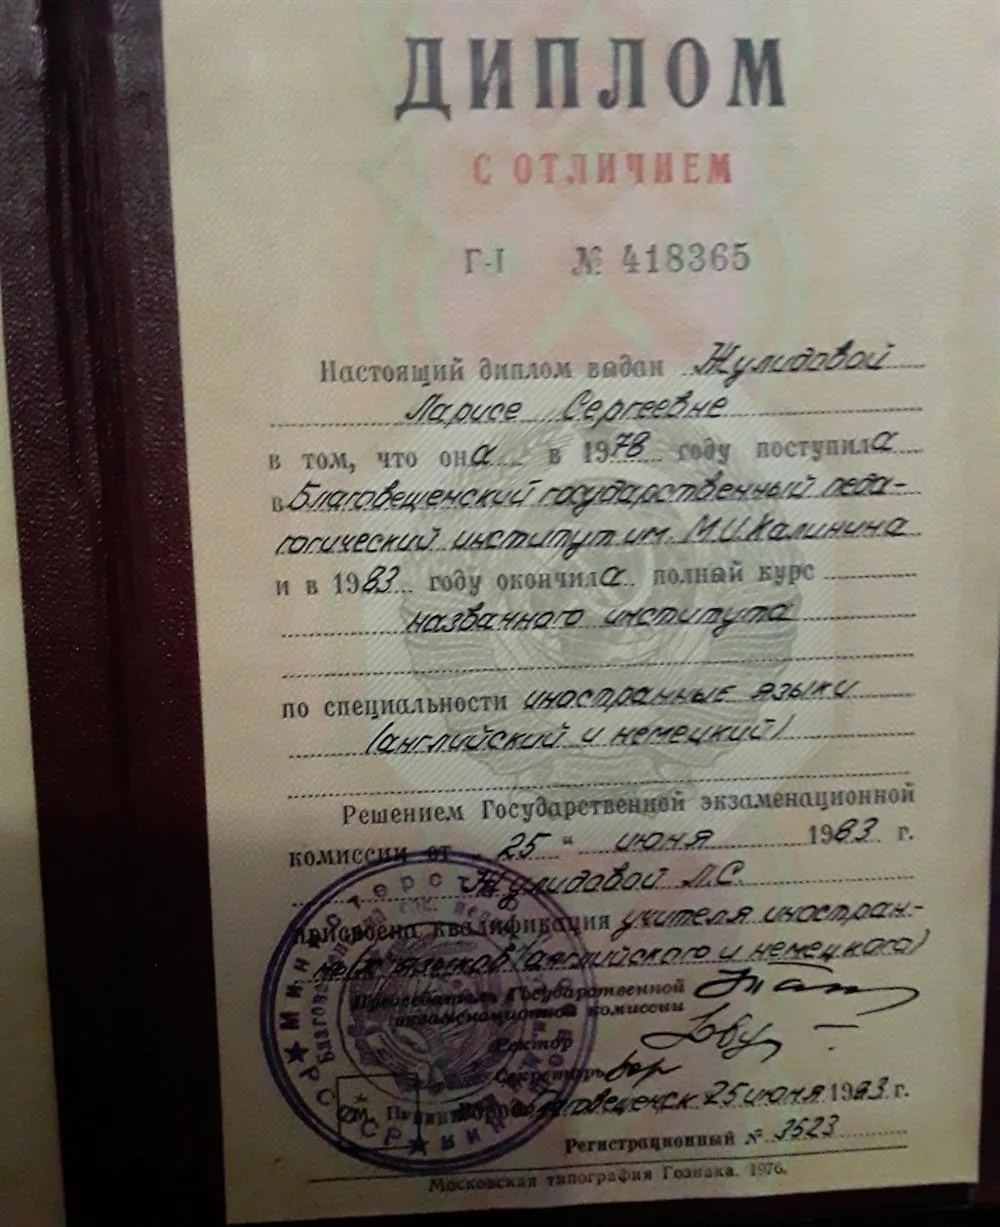 ДИПЛОМ
С ОТЛИЧИЕМ
Г-I № 418365
Настоящий диплом выдан Жулидовой
Ларисе Сергеевне
в том, что она в 1978 году поступила
в Благовещенский государственный педа-
гогический институт им. М.И.Калинина
и в 1983 году окончила полный курс
названного института
по специальности иностранные языки
(английский и немецкий)
Решением Государственной экзаменационной
комиссии от 25 " июня 1983 г.
Жулидовой Л.С.
присвоена квалификация учителя иностран-
ных языков (английского и немецкого)
Председатель Государственной
экзаменационной комиссии
Ректор
Секретарь
Город Благовещенск 25 июня 1983 г.
Регистрационный № 3523
Московская типография Гознака. 1976.